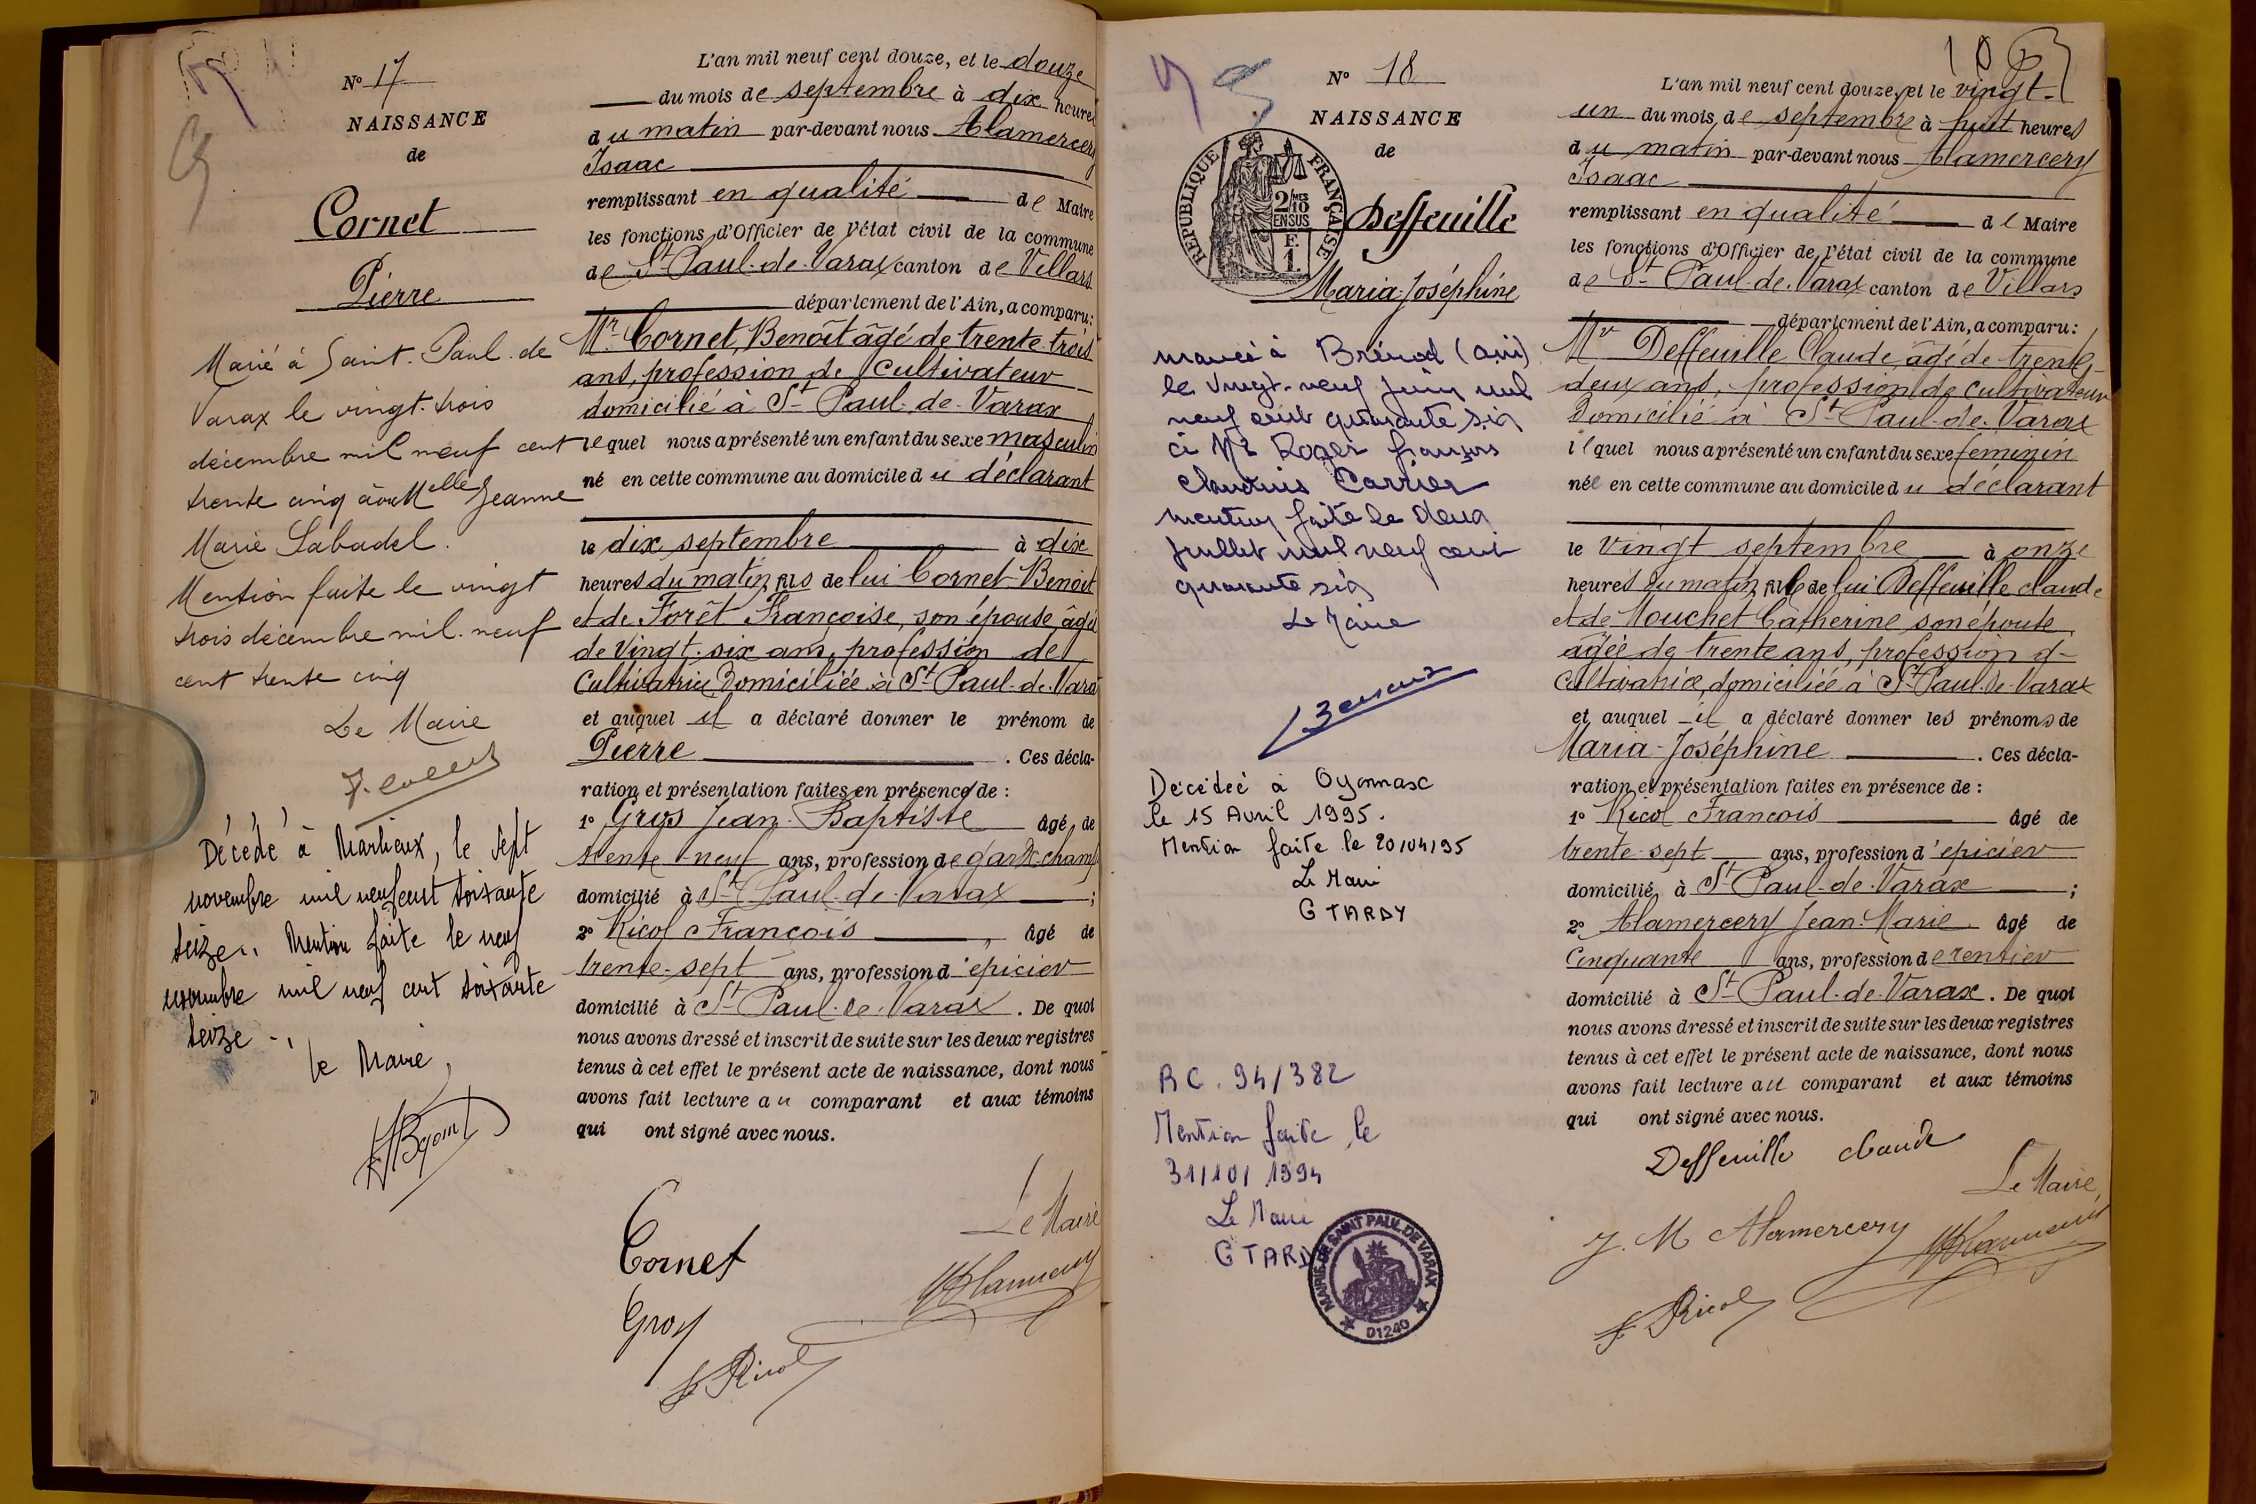 N° 17
NAISSANCE
de
Cornet
Pierre
Marié à Saint-Paul-de
Varax le vingt-trois
décembre mil neuf cent
trente cinq avec Melle Jeanne
Marie Sabadel.
Mention faite le vingt
trois décembre mil-neuf
cent trente cinq
Le Maire
Décédé à Marlieux, le sept
novembre mil neuf cent soixante
seize.. Mention faite le neuf
novembre mil neuf cent soixante
seize -.
le Maire,
L'an mil neuf cent douze, et le douze
du mois de septembre à dix heures
du matin par-devant nous Alamercery
Isaac
remplissant en qualité de Maire
les fonctions d'Officier de l'état civil de la commune
de St Paul-de-Varax canton de Villars
département de l'Ain, a comparu:
Mr Cornet, Benoît âgé de trente-trois
ans, profession de cultivateur
domicilié à St Paul-de-Varax
lequel nous a présenté un enfant du sexe masculin
né en cette commune au domicile du déclarant
le dix septembre à dix
heures du matin, fils de lui Cornet Benoit
et de Forêt Françoise, son épouse, âgée
de vingt-six ans, profession de
cultivatrice domiciliée à St Paul-de-Varax
et auquel il a déclaré donner le prénom de
Pierre . Ces décla-
ration et présentation faites en présence de :
1° Gros Jean-Baptiste âgé de
trente-neuf ans, profession de garde champ
domicilié à St Paul-de-Varax ;
2° Ricol François, âgé de
trente-sept ans, profession d'épicier
domicilié à St Paul-de-Varax . De quoi
nous avons dressé et inscrit de suite sur les deux registres
tenus à cet effet le présent acte de naissance, dont nous
avons fait lecture au comparant et aux témoins
qui ont signé avec nous.
Le Maire
Cornet
Gros
F Ricol
106
N° 18
NAISSANCE
de
REPUBLIQUE FRANÇAISE
2/10 MES
EN SUS
F.
1.
Deffeuille
Maria-Joséphine
mariée à Brénod (ain)
le vingt-neuf juin mil
neuf cent quarante six
à Mr Roger françois
Claudius Carrier
mention faite le deux
juillet mil neuf cent
quarante six
Le Maire
Décédée à Oyonnax
le 15 Avril 1995.
Mention faite le 20/04/95
Le Maire
G TARDY
RC. 94/382
Mention faite le
31/10/1994
Le Maire
G TARDY
MAIRIE DE SAINT PAUL DE VARAX
01240
L'an mil neuf cent douze, et le vingt-
un du mois de septembre à huit heures
du matin par-devant nous Alamercery
Isaac
remplissant en qualité de Maire
les fonctions d'Officier de l'état civil de la commune
de St Paul-de-Varax canton de Villars
département de l'Ain, a comparu:
Mr Deffeuille Claude, âgé de trente-
deux ans, profession de cultivateur
domicilié à St Paul-de-Varax
lequel nous a présenté un enfant du sexe féminin
née en cette commune au domicile du déclarant
le vingt septembre à onze
heures du matin, fille de lui Deffeuille claude
et de Mouchet Catherine son épouse
âgée de trente ans, profession d-
cultivatrice, domiciliée à St Paul-de-Varax
et auquel il a déclaré donner les prénoms de
Maria-Joséphine . Ces décla-
ration et présentation faites en présence de :
1° Ricol Francois âgé de
trente-sept ans, profession d'épicier
domicilié à St Paul-de-Varax ;
2° Alamercery Jean-Marie âgé de
Cinquante ans, profession de rentier
domicilié à St Paul-de-Varax . De quoi
nous avons dressé et inscrit de suite sur les deux registres
tenus à cet effet le présent acte de naissance, dont nous
avons fait lecture au comparant et aux témoins
qui ont signé avec nous.
Deffeuille claude
Le Maire,
J. M Alamercery
F Ricol